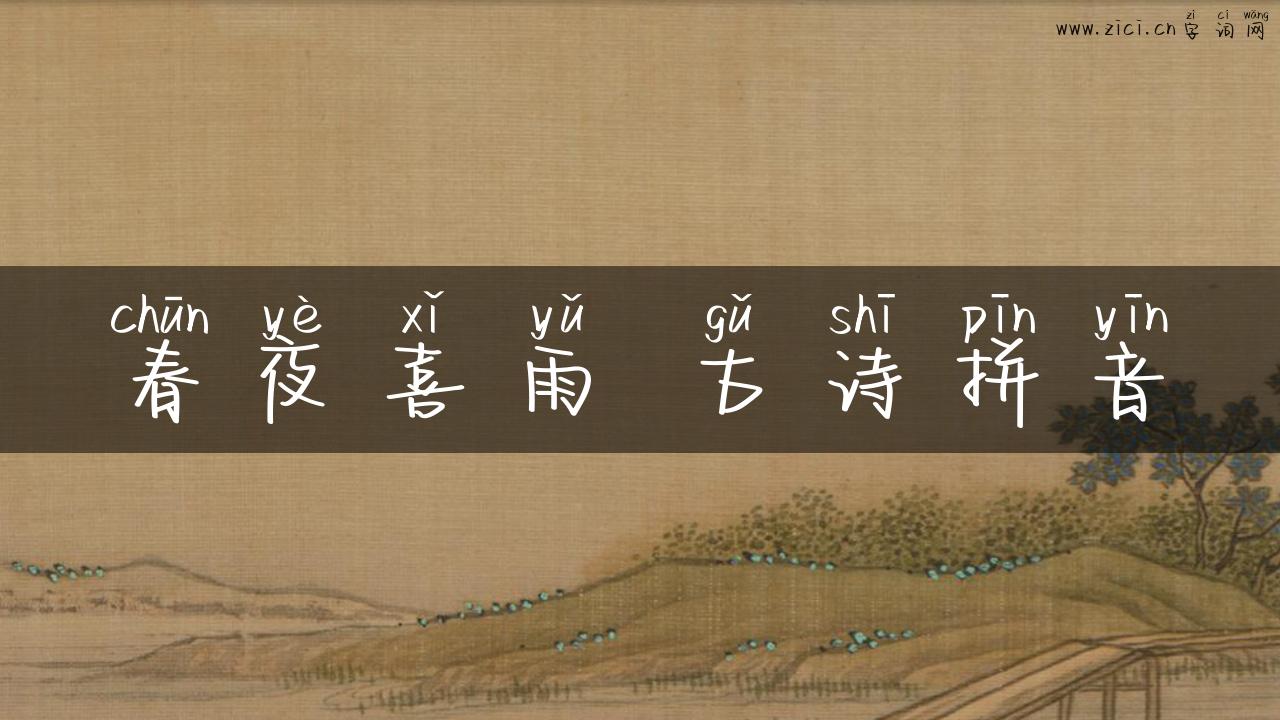 zì cí wǎng
www.zici.cn 字词网
chūn yè xǐ yǔ gǔ shī pīn yīn
春夜喜雨 古诗拼音